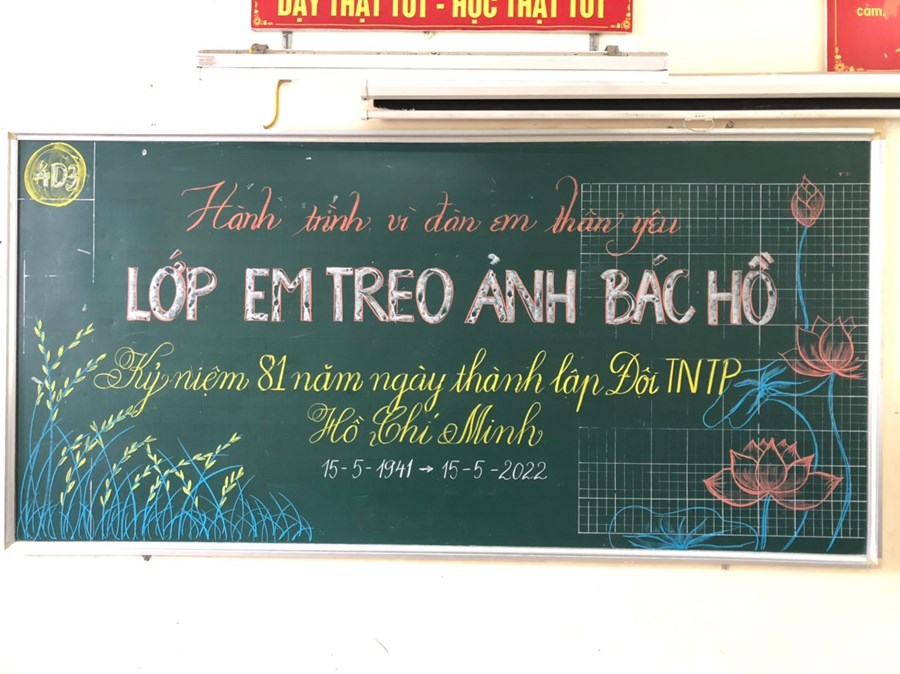 DẠY THẬT TỐT - HỌC THẬT TỐT
cảm.
4D3
Hành trình vì đàn em thân yêu
LỚP EM TREO ẢNH BÁC HỒ
Kỷ niệm 81 năm ngày thành lập Đội TNTP
Hồ Chí Minh
15-5-1941 → 15-5-2022